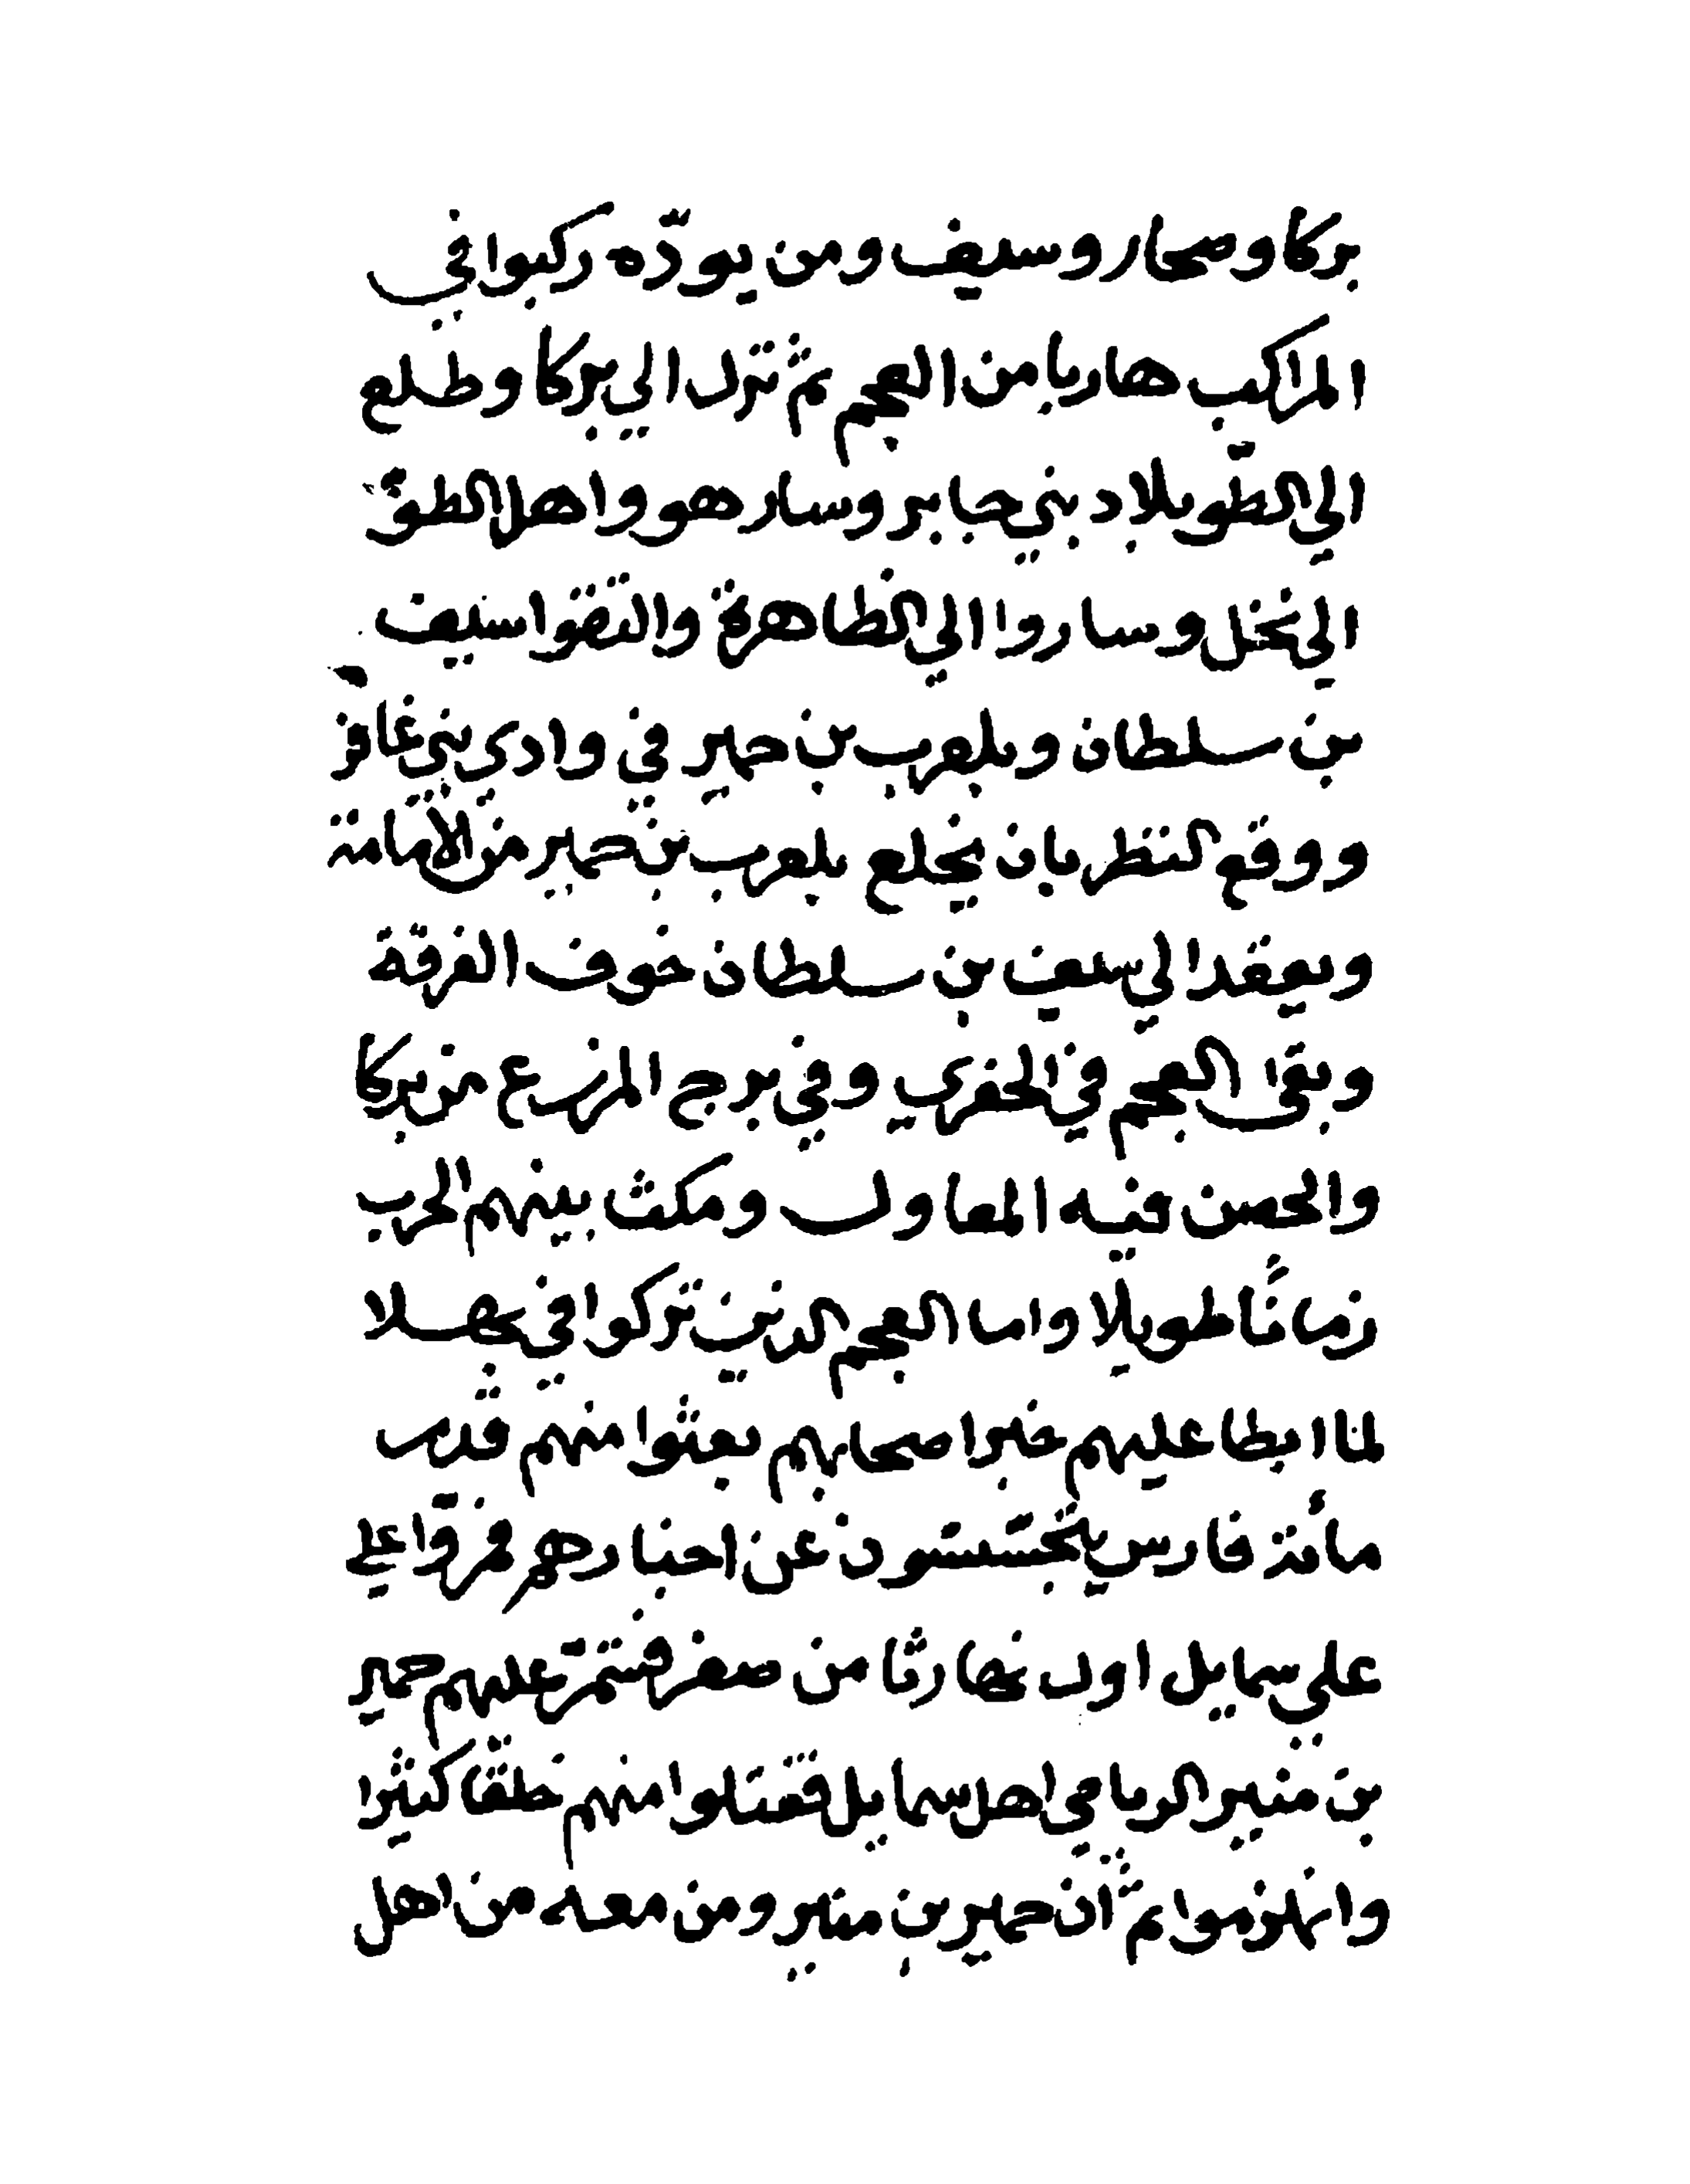 بركا وصحار وسيف ومن يودّه ركبوا في
المراكب هاربا من العجم ثم نزل الي بركا وطلع
الي الطّو بلاد بني جابر وسار هو واهل الطوّ
الي نخل وساروا الي الظاهرة والتقوا سيف
بن سلطان وبلعرب بن حمير في وادي بني غافر
ووقع النظر بان يخلع بلعرب بن حمير من الأمامة
ويعقد الي سيف بن سلطان خوف الفرقة
وبقى العجم في الحفري وفي برج المزرع من بركا
والحصن فيه المعاول ومكث بينهم الحرب
زمانًا طويلًا واما العجم الذين تركوا في بهلا
لما ابطا عليهم خبر اصحابهم بعثوا منهم قدر
مأئة فارس يتجسسون عن اخبارهم فمرّوا علي
علي سمايل اول نهار ثا من صفر فتمّر عليهم حمير
بن منير الريامي اهل سمايل فقتلوا منهم خلقًا كثيرا
وانهزموا ثم أن حمير بن منير ومن معه من اهل